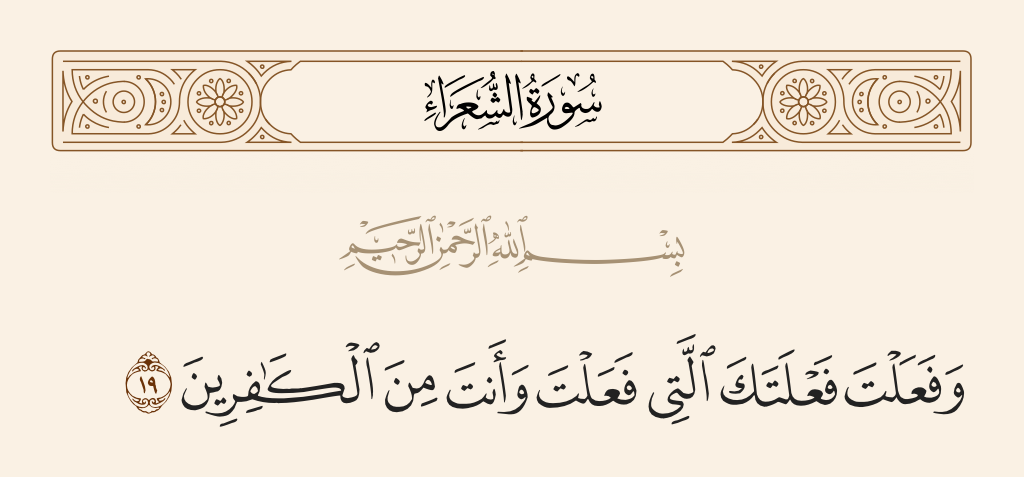 سُورَةُ الشُّعَرَاءِ
بِسْمِ ٱللَّهِ ٱلرَّحْمَٰنِ ٱلرَّحِيمِ
وَفَعَلْتَ فَعْلَتَكَ ٱلَّتِى فَعَلْتَ وَأَنتَ مِنَ ٱلْكَـٰفِرِينَ ١٩